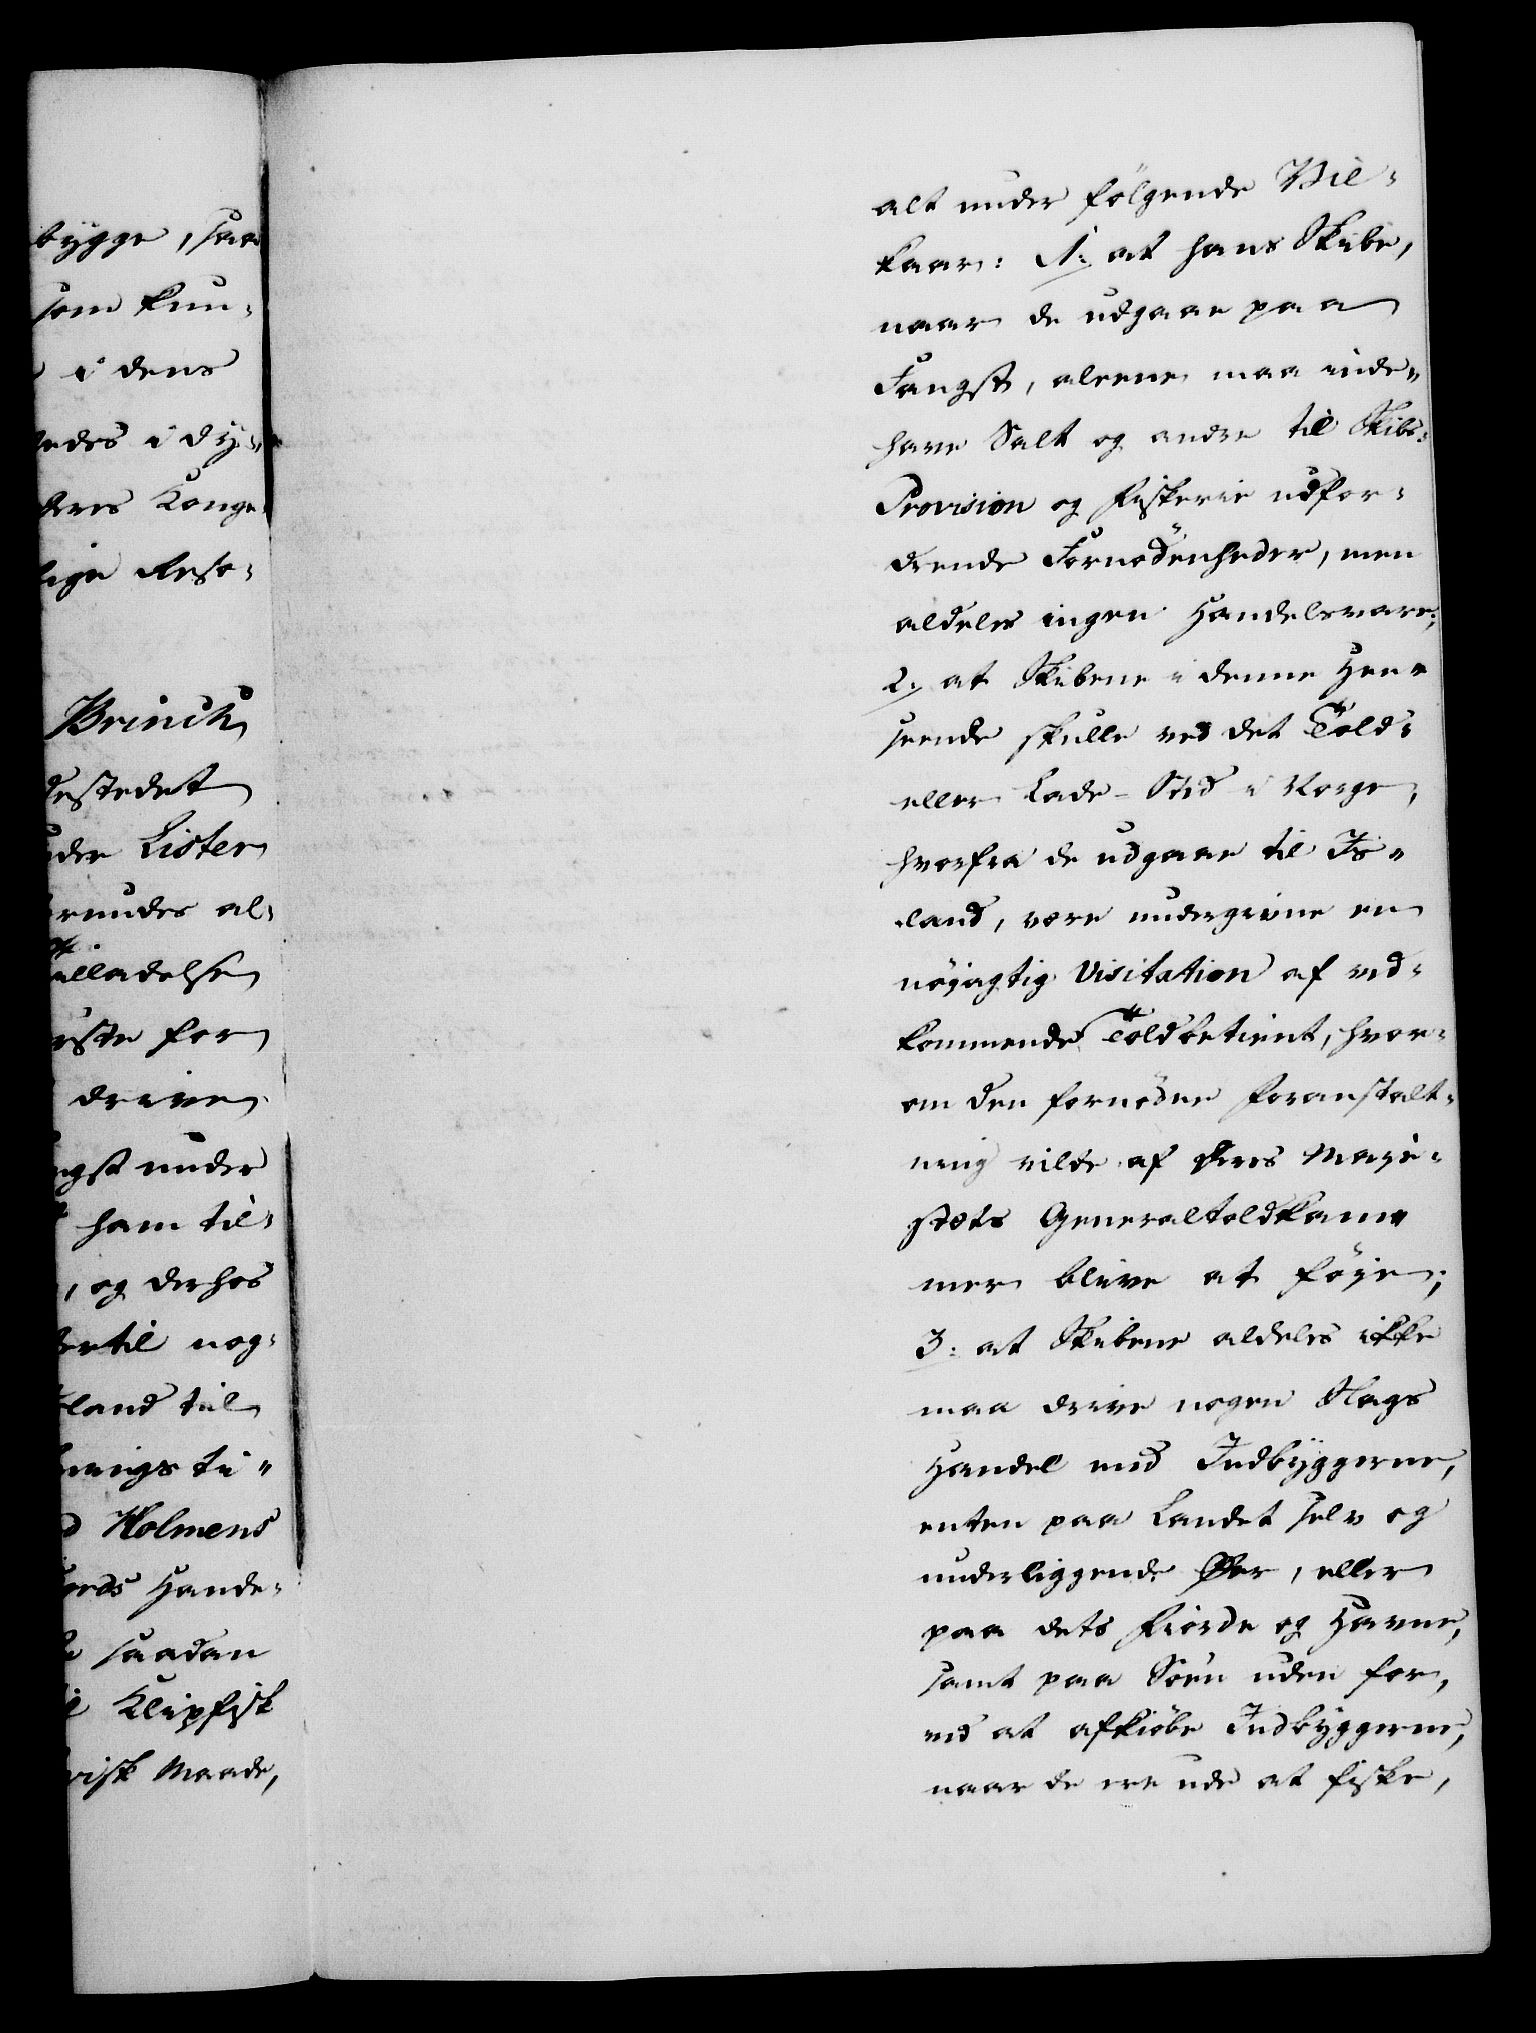 bygge, saa
som kun-
i dens
Konge-
lige Reso-
Brinch
Lister
illadelse
for
drive
under
ham til-
, og derhos
ertil nog-
land til
Holmens
Hande-
saadan
Klipfisk
visk Maade,
alt under følgende Vil-
kaar: 1: at hans Skibe,
naar de udgaae paa
Fangst, aleene maa inde-
have Salt og andre til Skibs-
Provision og Fiskerie udfor-
drende Fornødenheder, men
aldeles ingen Handelsvare;
2, at Skibene i denne Hen-
seende skulle ved det Told-
eller Lade-Sted i Norge,
hvorfra de udgaae til Is-
land, være undergivne en
nøjagtig Visitation af ved-
kommende Toldbetient, hvor-
om den fornødne Foranstalt-
ning vilde af Deres Maje-
stæts Generaltoldkam-
mer blive at føje;
3: at Skibene aldeles ikke
maa drive nogen Slags
Handel med Indbyggerne,
enten paa Landet selv og
underliggende Øer, eller
paa dets Fiorde og Havne,
samt paa Søen uden for,
ved at afkiøbe Indbyggerne,
naar de ere ude at fiske,